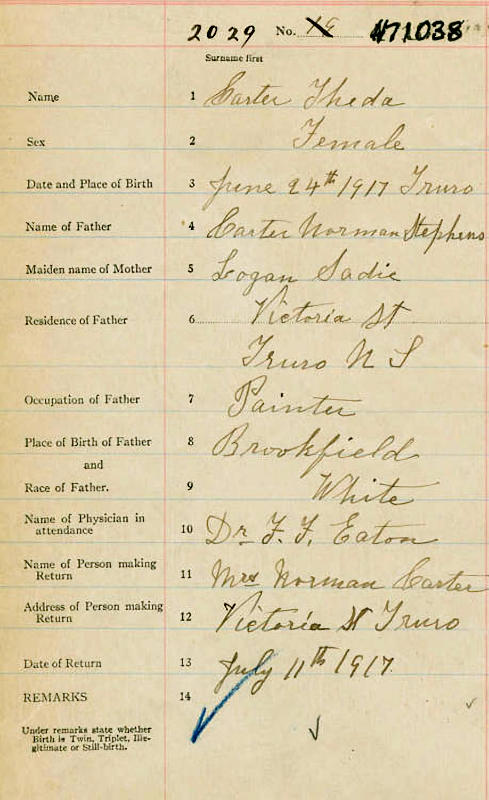 2029 No. 471038
Surname first
Name 1 Carter Theda
Sex 2 Female
Date and Place of Birth 3 June 24th 1917 Truro
Name of Father 4 Carter Norman Stephens
Maiden name of Mother 5 Logan Sadie
Residence of Father 6 Victoria St
Truro N S
Occupation of Father 7 Painter
Place of Birth of Father 8 Brookfield
and
Race of Father. 9 White
Name of Physician in
attendance 10 Dr. F. F. Eaton
Name of Person making
Return 11 Mrs Norman Carter
Address of Person making
Return 12 Victoria St Truro
Date of Return 13 July 11th 1917
REMARKS 14
Under remarks state whether
Birth is Twin, Triplet, Ille-
gitimate or Still-birth.